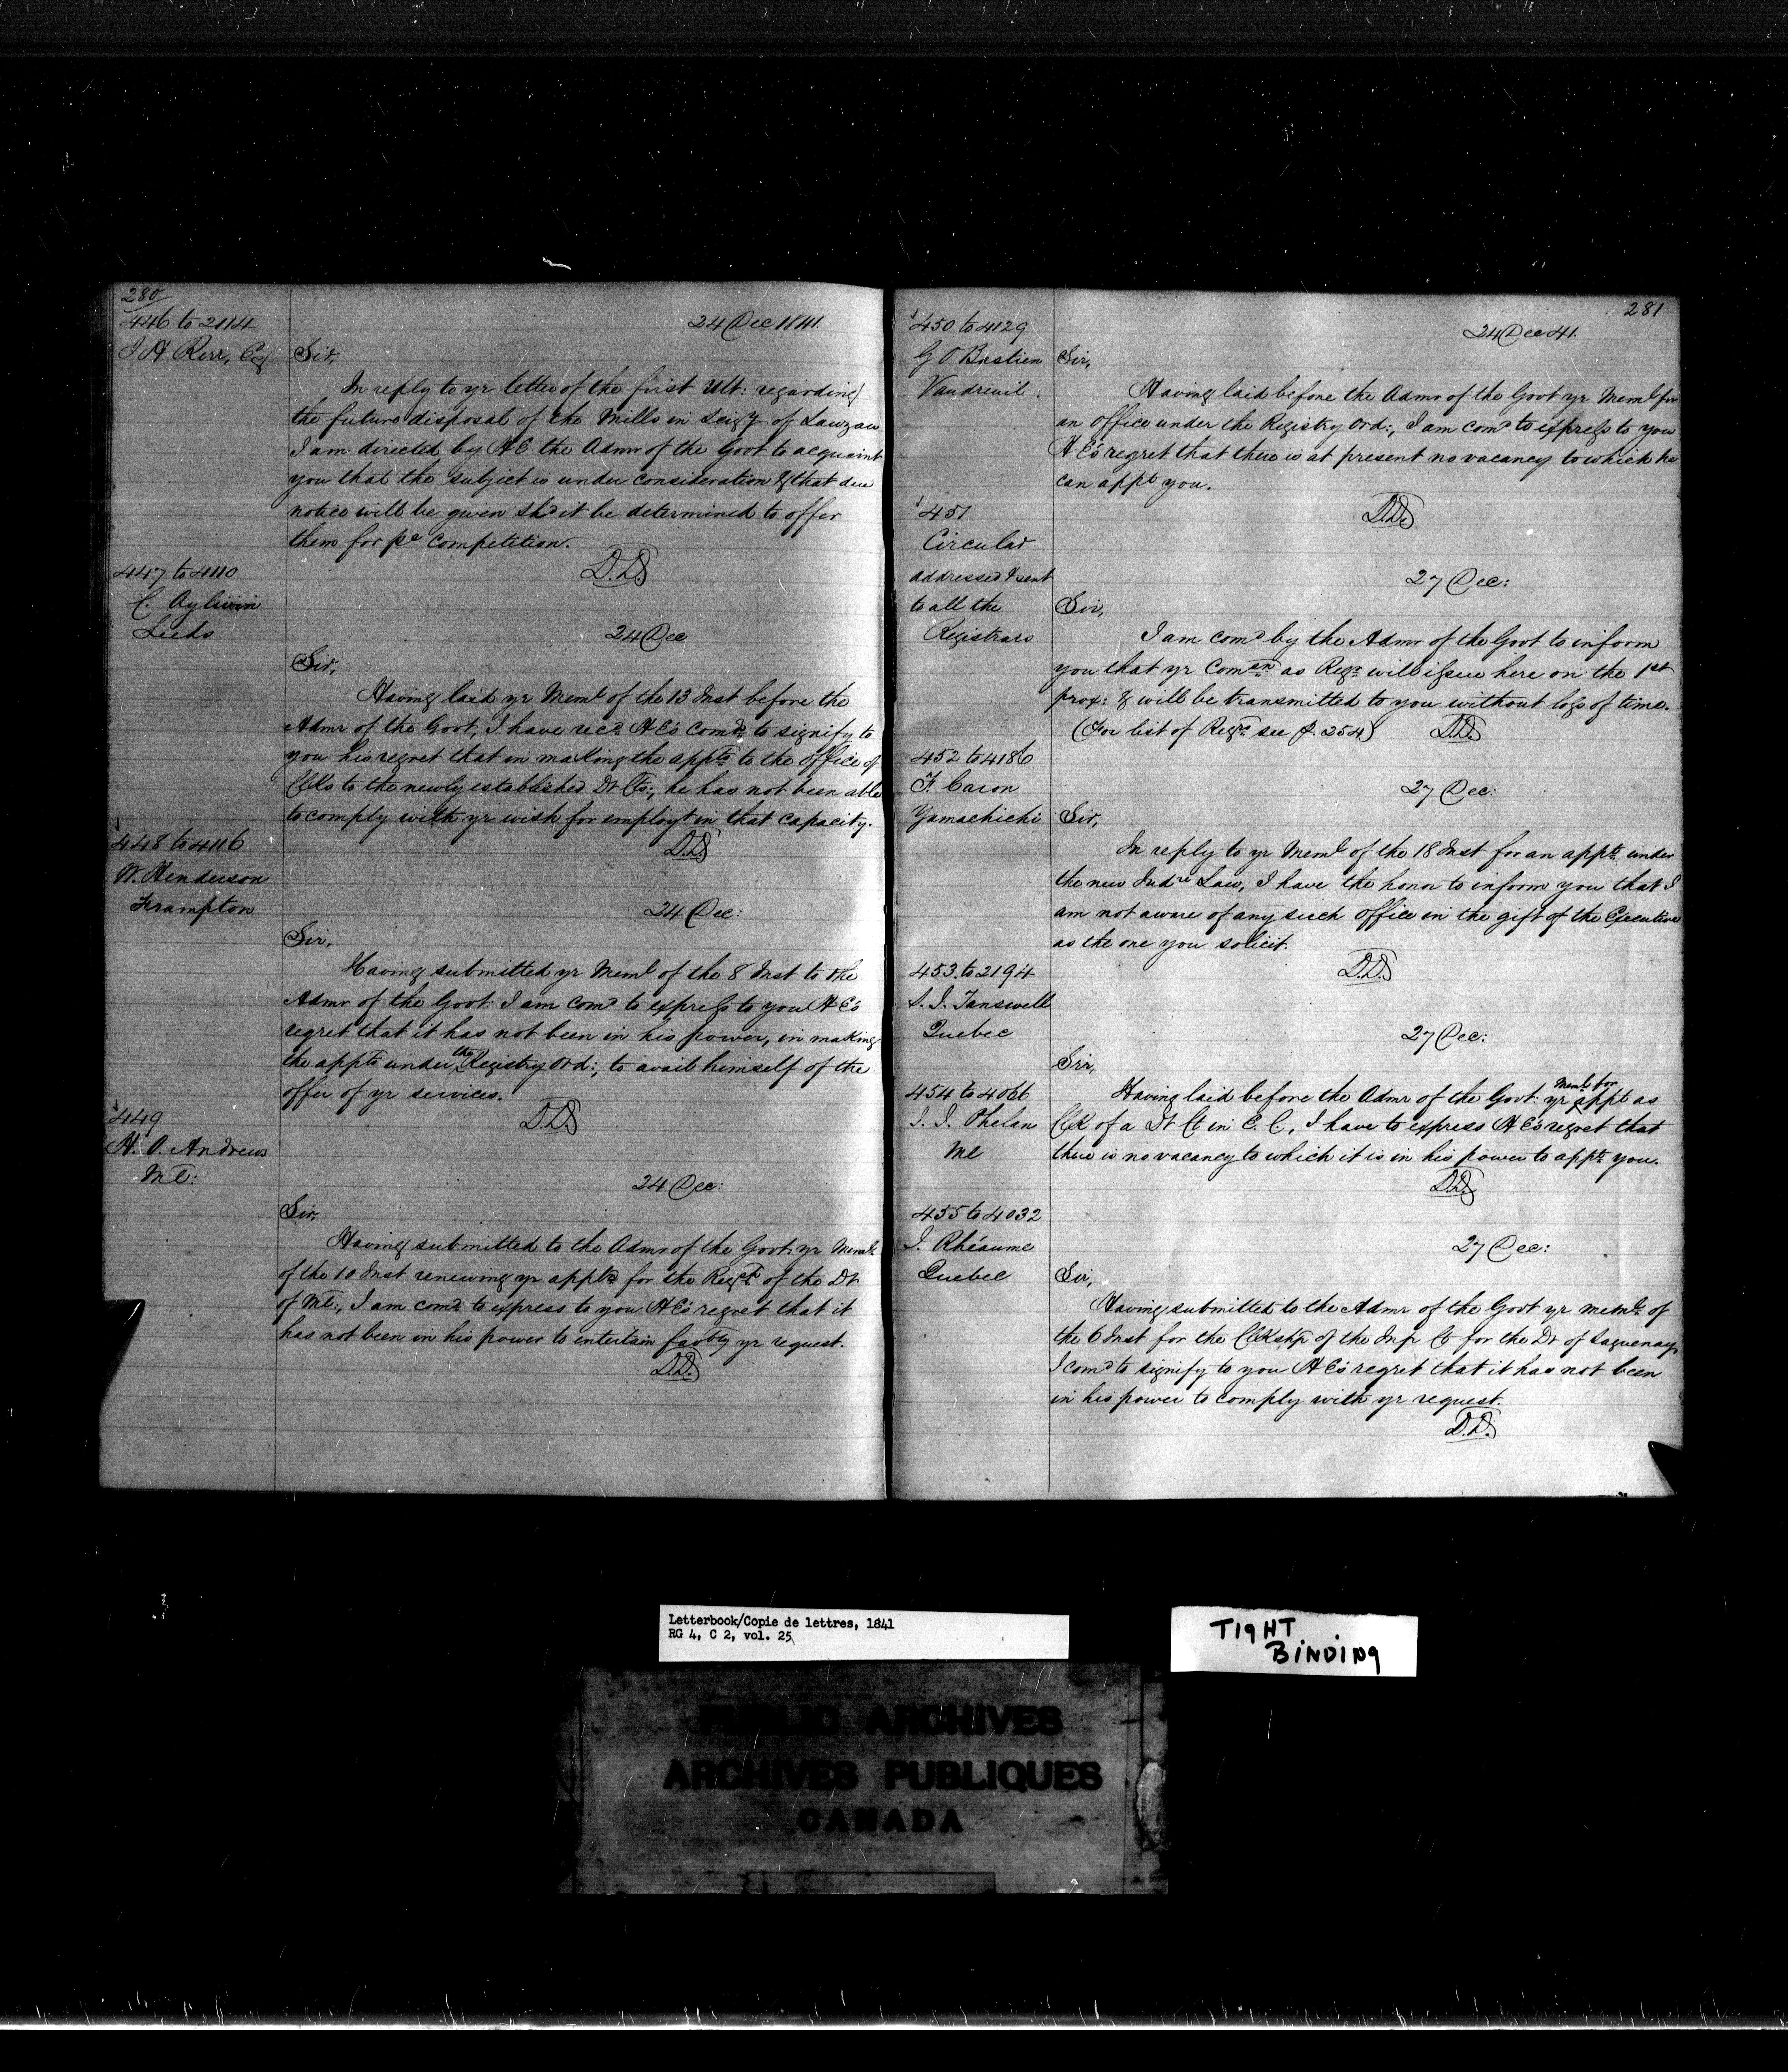 280
446 to 2114
J A Kerr, Esq
24 Dec 1841.
Sir,
In reply to yr letter of the first Ult: regarding
the future disposal of the Mills in Seigy of Lauzan
I am directed by H E the Admr of the Govt to acquaint
you that the subject is under consideration & that due
notice will be given shd it be determined to offer
them for pc competition.
D.D
447 to 4110
C. Aylwin
Leeds
24 Dec
Sir,
Having laid yr Meml of the 13 Inst before the
Admr of the Govt, I have recd H E's Comds to signify to
you his regret that in making the appts to the office of
Clks to the newly established Dt Cts:, he has not been able
to comply with yr wish for employt in that capacity.
D.D.
448 to 4116
W. Henderson
Frampton
24 Dec:
Sir,
Having submitted yr Meml of the 8 Inst to the
Admr of the Govt: I am comd to express to you H E's
regret that it has not been in his power, in making
the appts under the Registry Ord:, to avail himself of the
offer of yr services.
D.D
449
H. O. Andrews
Ml:
24 Dec:
Sir,
Having submitted to the Admr of the Govt: yr Meml
of the 10 Inst renewing yr appln for the Regp of the Dt
of Ml:, I am comd to express to you H E's regret that it
has not been in his power to entertain favbly yr request.
D.D.
281
450 to 4129
G O Bastien
Vaudreuil.
24 Dec 41.
Sir,
Having laid before the Admr of the Govt yr Meml for
an office under the Registry Ord:, I am comd to express to you
H E's regret that there is at present no vacancy to which he
can appt you.
D.D.
451
Circular
addressed & sent
to all the
Registrars
27 Dec:
Sir,
I am comd by the Admr of the Govt to inform
you that yr Comn as Regr will issue here on the 1st
prox: & will be transmitted to you without loss of time.
(For list of Regrs see p. 254)
D.D.
452 to 4186
F. Caron
Yamachichi
27 Dec:
Sir,
In reply to yr Meml of the 18 Inst for an appt under
the new Judre Law, I have the honor to inform you that I
am not aware of any such office in the gift of the Executive
as the one you solicit.
D.D.
453 to 2194
S. J. Tanswell
Quebec
454 to 4066
J. J. Phelan
Ml
27 Dec:
Sir,
Having laid before the Admr of the Govt: yr Meml for appt as
Clk of a Dt Ct in C. C, I have to express H E's regret that
there is no vacancy to which it is in his power to appt you.
D.D.
455 to 4032
J. Rhéaume
Quebec
27 Dec:
Sir,
Having submitted to the Admr of the Govt yr meml of
the 6 Inst for the Clkshp of the Inf Ct for the Dt of Saguenay,
I comd to signify to you H E's regret that it has not been
in his power to comply with yr request.
D.D.
Letterbook/Copie de lettres, 1841
RG 4, C 2, vol. 25
TIGHT
BINDING
PUBLIC ARCHIVES
ARCHIVES PUBLIQUES
CANADA